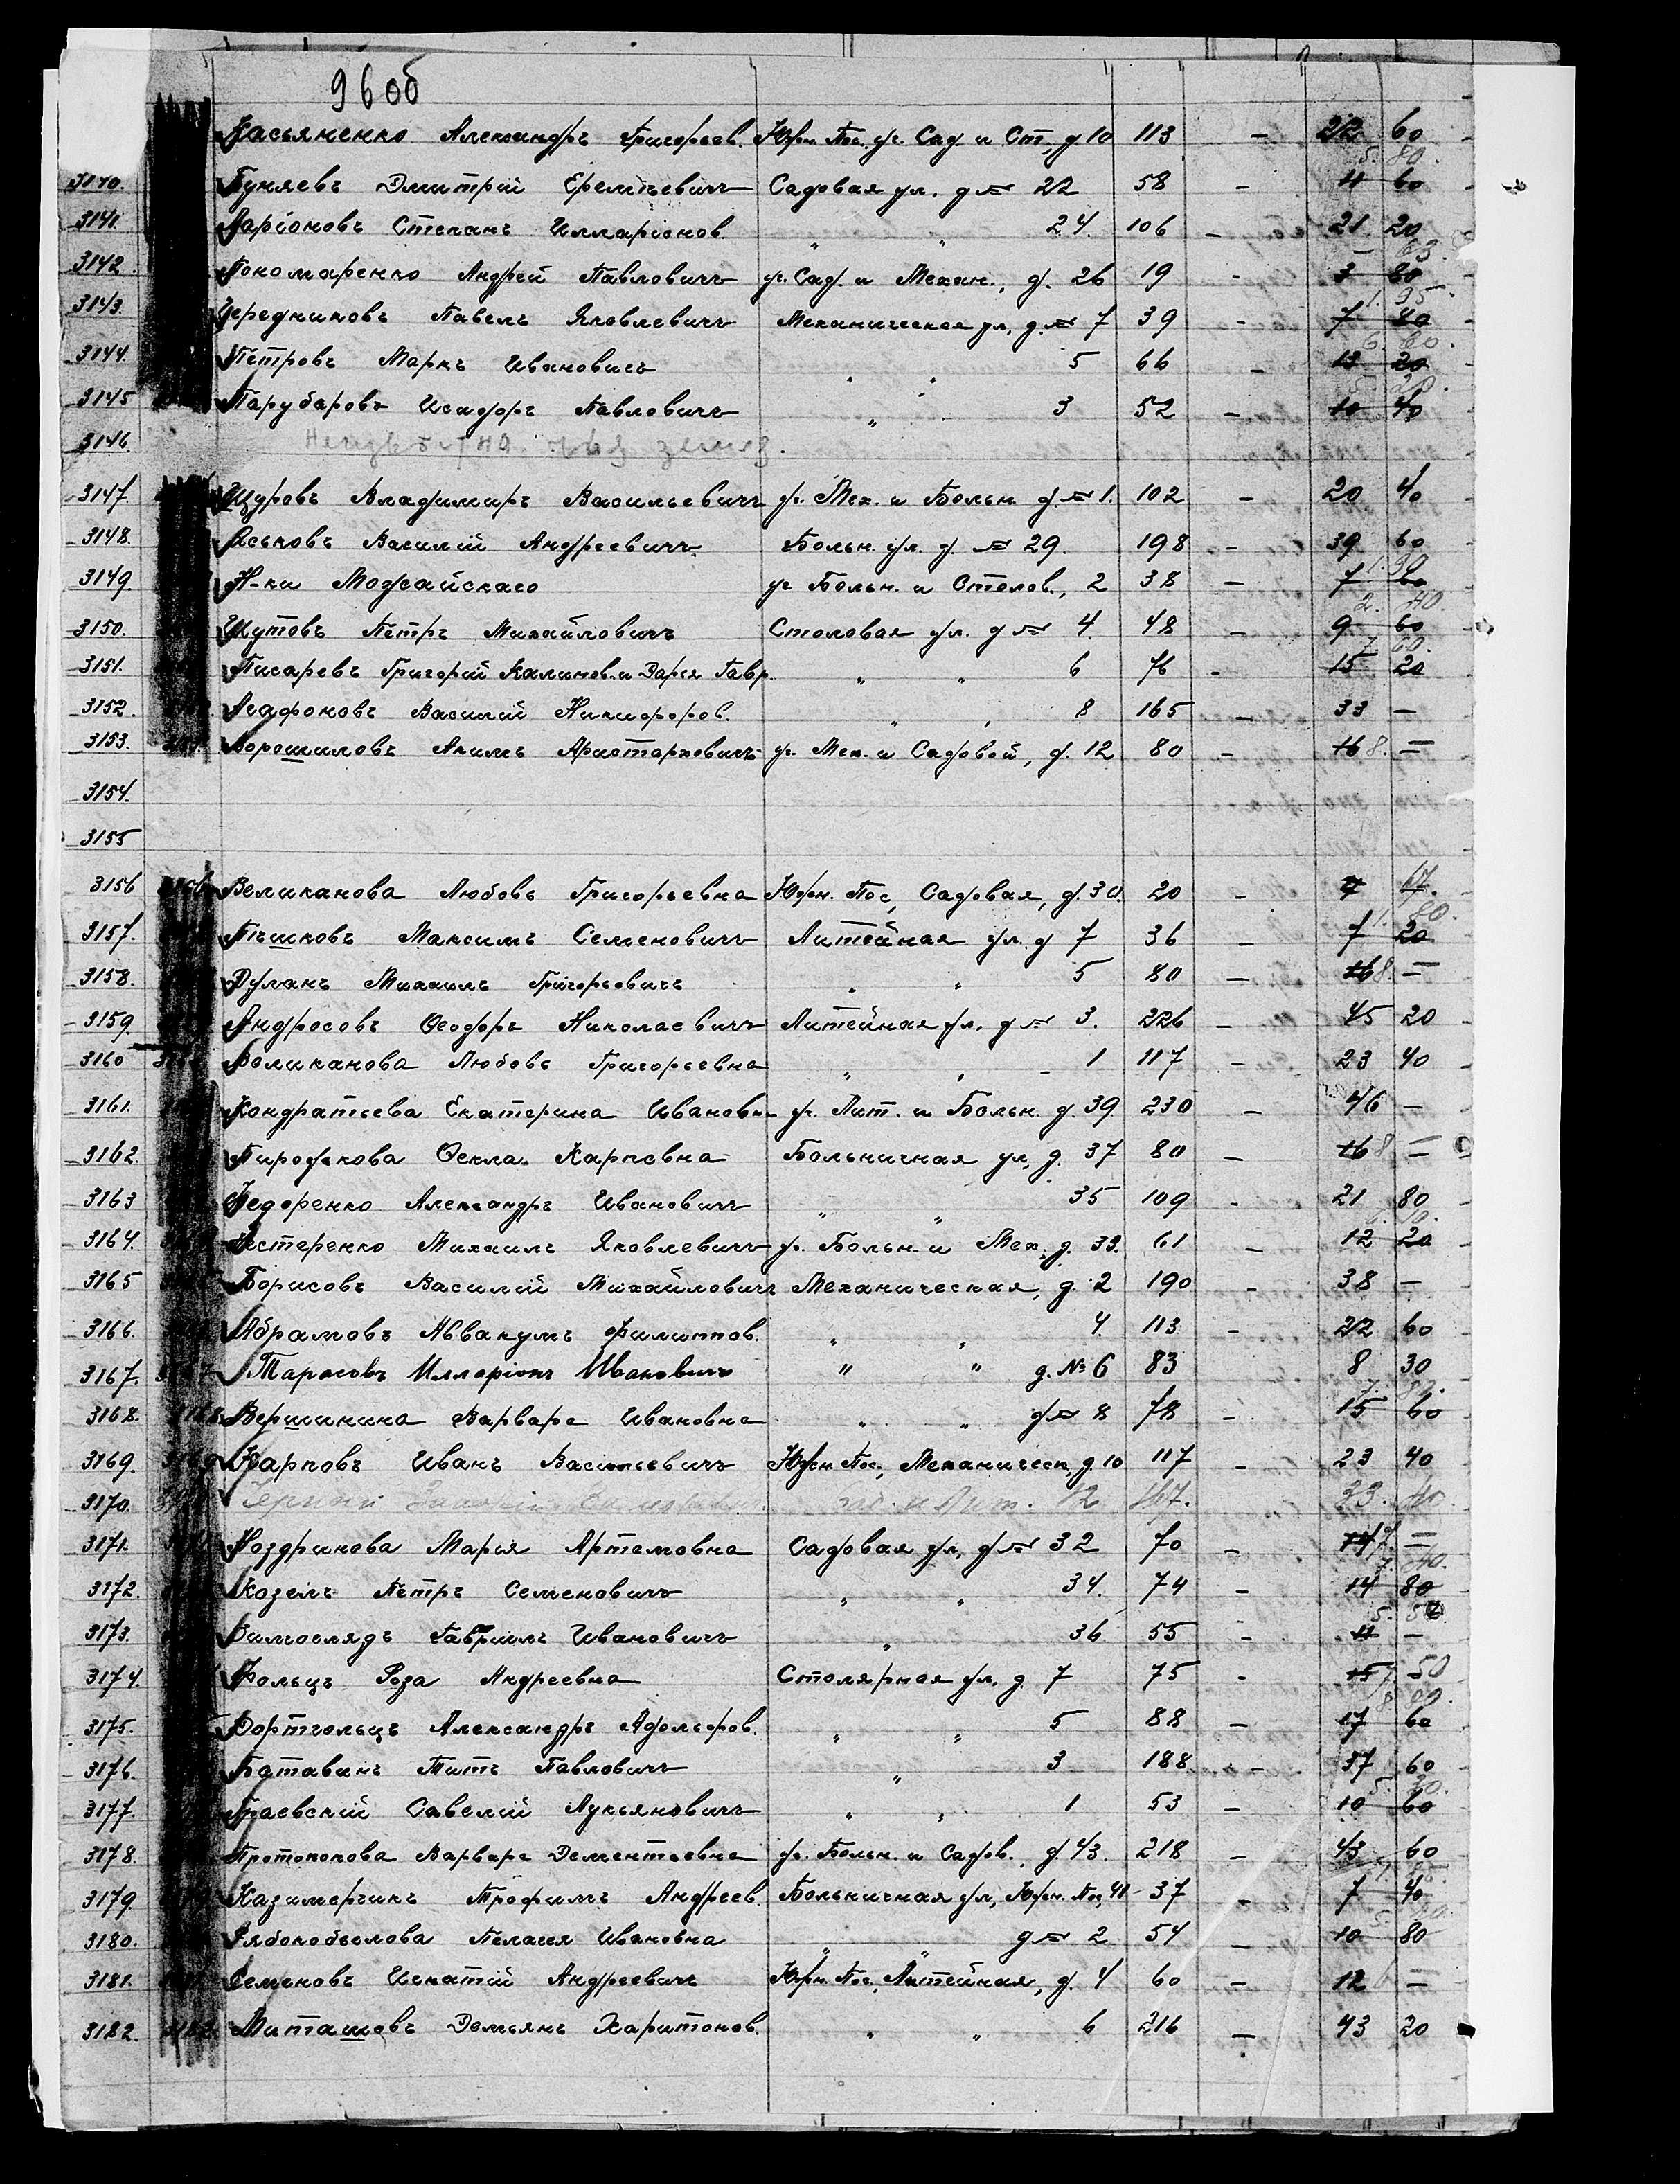 96об
Касьяненко Александръ Григорьев. Южн. Пос. уг. Сад. и Ст., д. 10 113 - 22 60
3140. Буняевъ Дмитрій Еремѣевичъ Садовая ул. д № 22 58 - 11 60 5. 80.
3141. Ларіоновъ Степанъ Илларіонов. " " 24. 106 - 21 20
3142. Пономаренко Андрей Павловичъ уг. Сад. и Механ., д. 26 19 - 3 80
3143. Чередниковъ Павелъ Яковлевичъ Механическая ул., д. № 7 39 - 7 80 1. 95.
3144. Петровъ Маркъ Ивановичъ " " 5 66 - 13 20 6. 60.
3145 Парубаровъ Исидоръ Павловичъ " 3 52 - 10 40 5. 20.
3146. Неизвѣстно чья земля.
3147. Щуровъ Владимиръ Васильевичъ уг. Мех. и Больн. д. № 1. 102 - 20 40
3148. Аськовъ Василій Андреевичъ Больн. ул. д. № 29. 198 - 39 60
3149. Н-ки Можайскаго уг. Больн. и Столов., 2 38 - 7 60 1. 90
3150. Шутовъ Петръ Михайловичъ Столовая ул. д № 4. 48 - 9 60 2. 40.
3151. Писаревъ Григорій Калинов. и Дарья Гавр. " " 6 76 - 15 20 7. 60.
3152. Агафоновъ Василій Никифоров. " " 8 165 - 33 -
3153. Ворошиловъ Акимъ Аристарховичъ уг. Мех. и Садовой, д. 12 80 - 16 8. -
3154.
3155
3156 3156 Великанова Любовь Григорьевна Южн. Пос., Садовая, д. 30. 20 -
3157. Пѣшковъ Максимъ Семеновичъ Литейная ул. д 7 36 - 7 20 1. 80.
3158. Дуланъ Михаилъ Григорьевичъ " " 5 80 - 16 8. -
3159. Андросовъ Ѳеодоръ Николаевичъ Литейная ул. д № 3. 226 - 45 20
3160 Великанова Любовь Григорьевна " " - 1 117 - 23 40
3161. Кондратьева Екатерина Ивановн уг. Лит. и Больн. д. 39. 230 - 46 -
3162. Пирожкова Ѳекла Карповна Больничная ул., д. 37 80 - 16 8 -
3163 Федоренко Александръ Ивановичъ " " 35 109 - 21 80
3164. Нестеренко Михаилъ Яковлевичъ уг. Больн. и Мех. д. 33. 61 - 12 20
3165 Борисовъ Василій Михайловичъ Механическая, д. 2 190 - 38 -
3166. Абрамовъ Аввакумъ Филиппов. " " 4 113 - 22 60
3167. Тарасовъ Илларіонъ Ивановичъ " " д. № 6 83 8 30
3168. 3168 Вершинина Варвара Ивановна " " д № 8 78 - 15 60
3169. Карповъ Иванъ Васильевичъ Южн. Пос., Механическ., д. 10 117 - 23 40
3170. Черный и Лит. 12 167. 33. 40.
3171. Ноздринова Марія Артемовна Садовая ул., д № 32 70 - 14 7. -
3172. Козелъ Петръ Семеновичъ " " 34. 74 - 14 80 7. 40.
3173. Зимоглядъ Гавріилъ Ивановичъ " 36 55 - 11 -
3174. Фольцъ Роза Андреевна Столярная ул., д. 7 75 - 15 7 50
3175. Дортгольцъ Александръ Адольфов. " " 5 88 - 17 60 8. 80.
3176. Батавинъ Титъ Павловичъ " 3 188 - 37 60
3177. Граевскій Савелій Лукьяновичъ " " 1 53 - 10 60 5. 30.
3178. Протопопова Варвара Дементьевна уг. Больн. и Садов., д. 43. 218 - 43 60
3179. Казимерчикъ Трофимъ Андреев. Больничная ул., Южн. Пос., 41 37 - 7 40
3180. Рябокобылова Пелагея Ивановна " " д № 2 54 - 10 80 5. 40.
3181. Семеновъ Игнатій Андреевичъ Южн. Пос., Литейная, д. 4 60 - 12 6 -
3182. 3182 Миташовъ Демьянъ Харитонов. " " 6 216 - 43 20